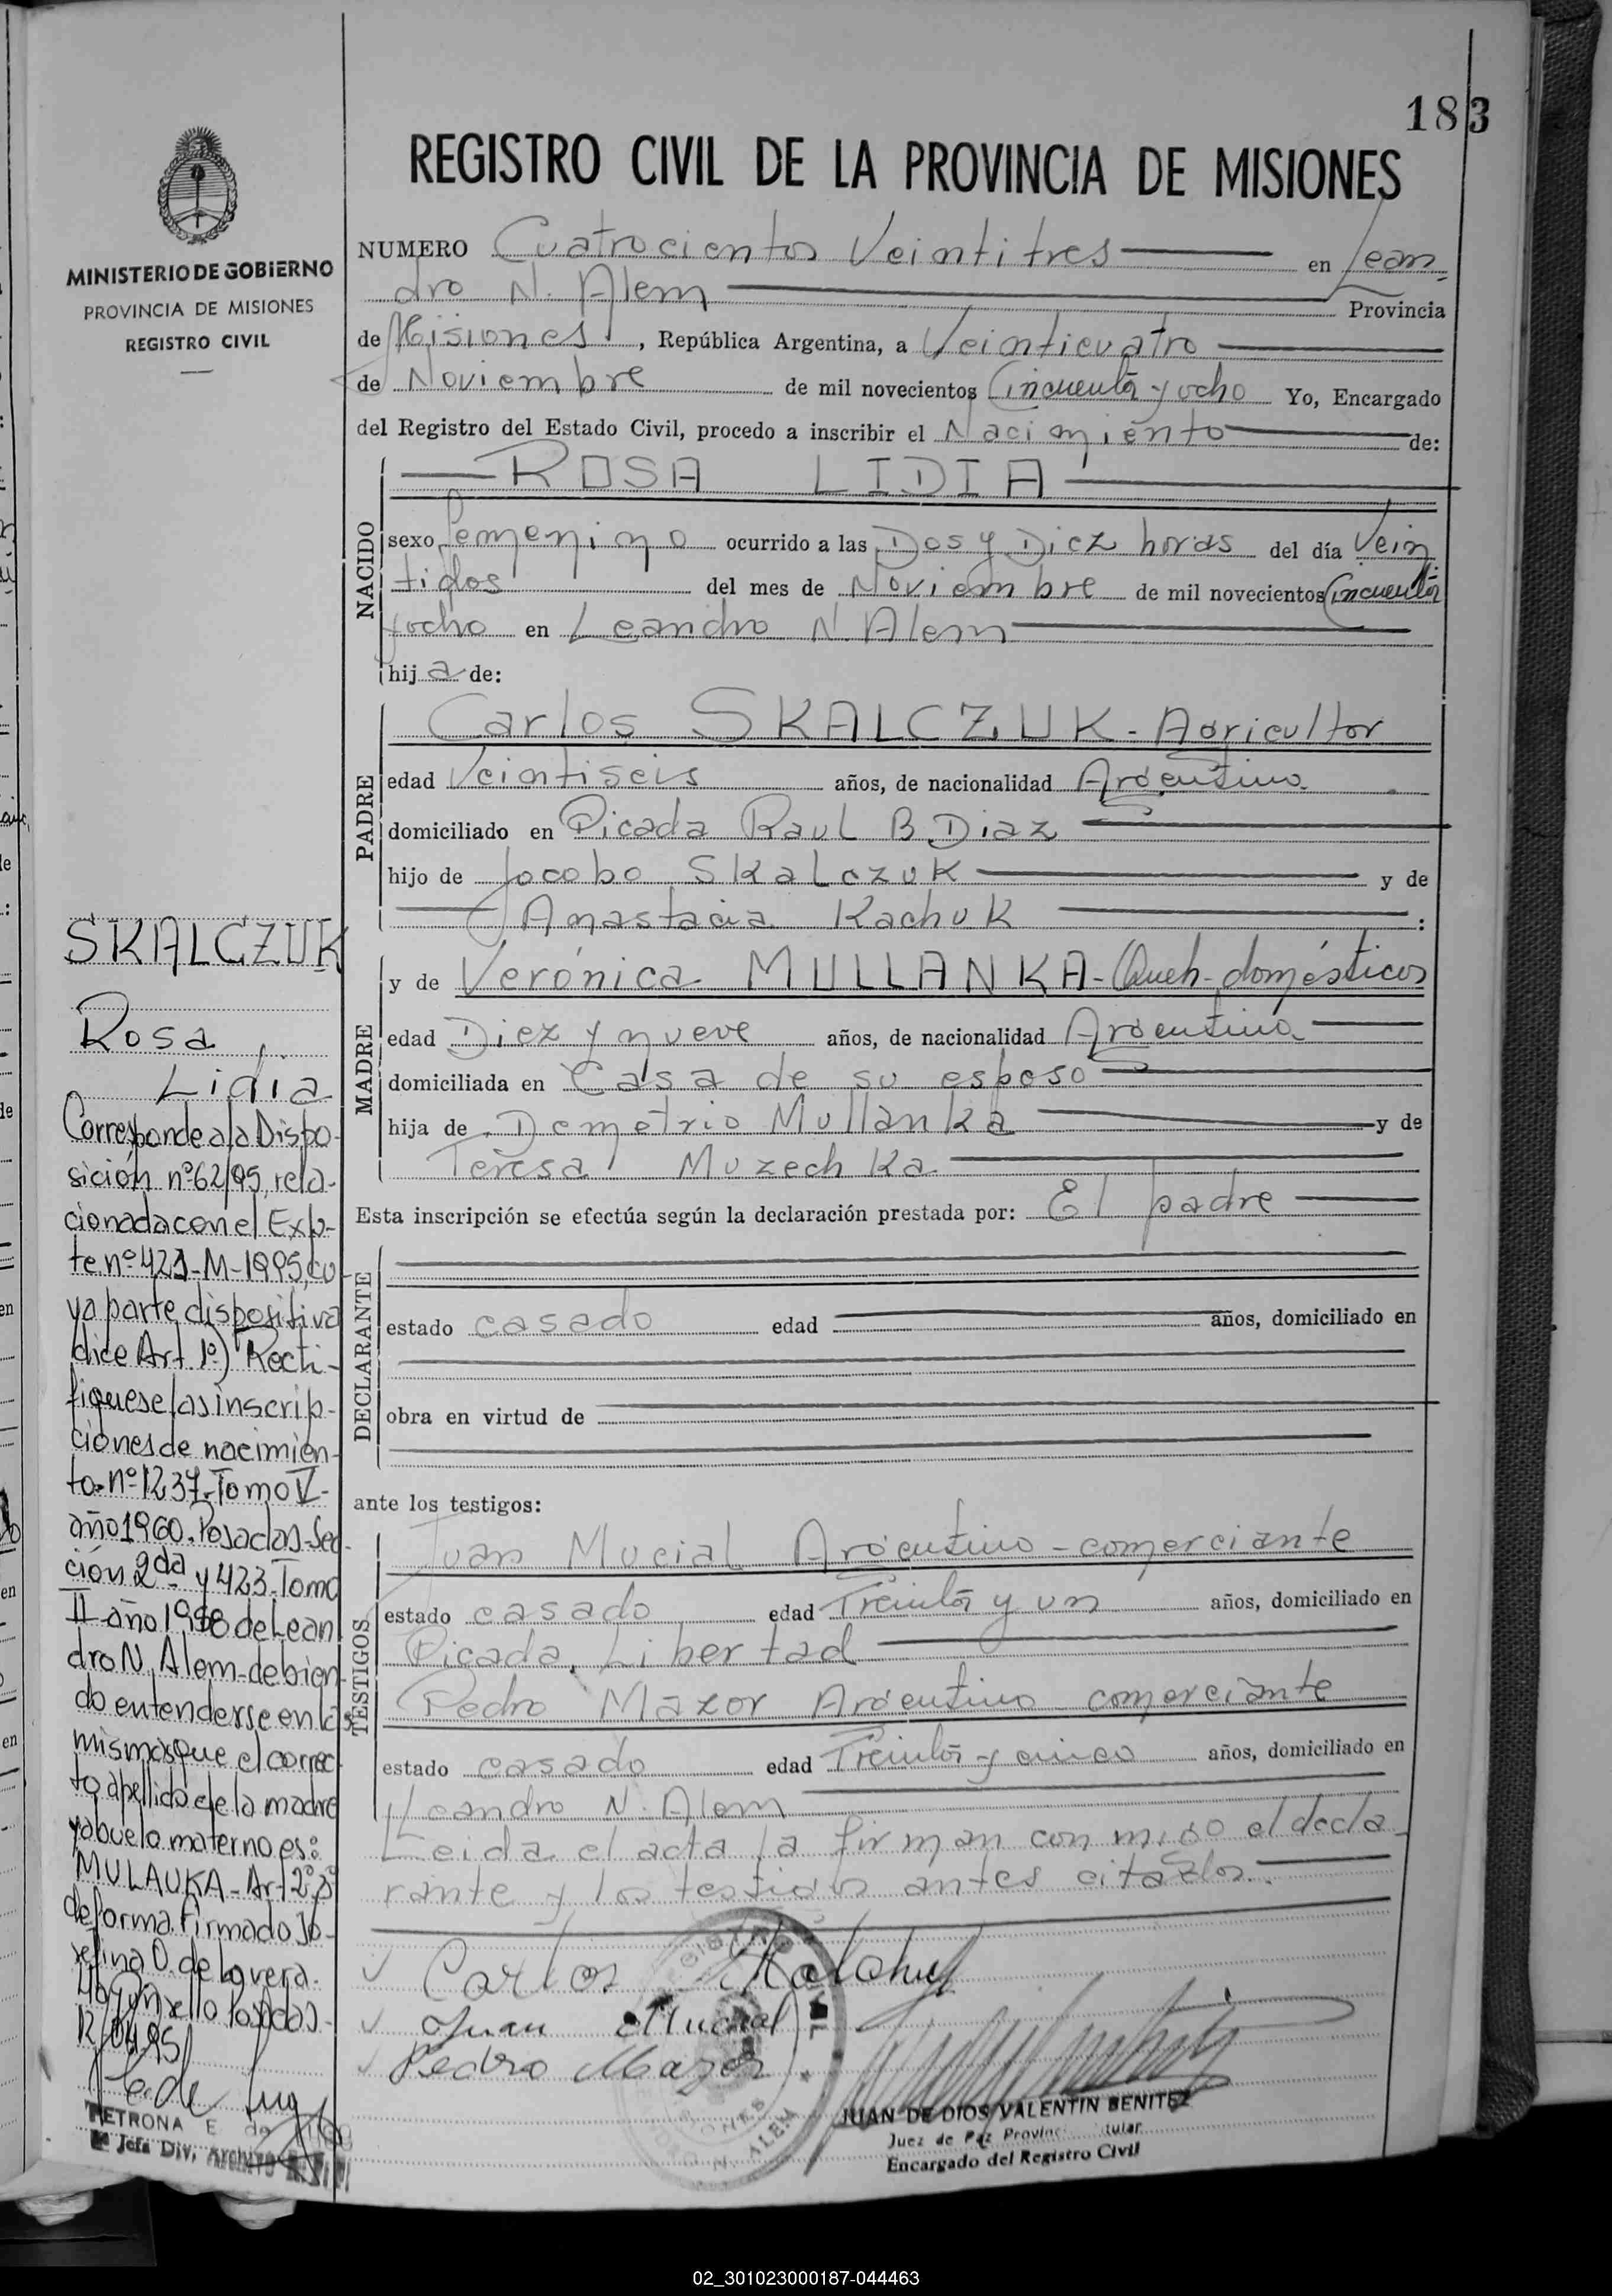 183
REGISTRO CIVIL DE LA PROVINCIA DE MISIONES
MINISTERIO DE GOBIERNO
PROVINCIA DE MISIONES
REGISTRO CIVIL
NUMERO Cuatrocientos Veintitres en Lean-
dro N. Alem Provincia
de Misiones, República Argentina, a Veinticuatro
de Noviembre de mil novecientos Cincuenta y ocho Yo, Encargado
del Registro del Estado Civil, procedo a inscribir el Nacimiento de:
NACIDO
ROSA LIDIA
sexo femenino ocurrido a las Dos y Diez horas del día Vein-
tidos del mes de Noviembre de mil novecientos Cincuenta
y ocho en Leandro N. Alem
hija de:
PADRE
Carlos SKALCZUK - Agricultor
edad Veintiseis años, de nacionalidad Argentino
domiciliado en Picada Raul B. Diaz
hijo de Jocobo Skalczuk y de
Anastacia Kachuk :
MADRE
y de Verónica MULLANKA - Queh-domésticos
edad Diez y nueve años, de nacionalidad Argentina
domiciliada en Casa de su esposo
hija de Demetrio Mullanka y de
Teresa Muzechka
Esta inscripción se efectúa según la declaración prestada por: El padre
DECLARANTE
estado casado edad años, domiciliado en
obra en virtud de
ante los testigos:
TESTIGOS
Juan Mucial Argentino - comerciante
estado casado edad Treinta y un años, domiciliado en
Picada Libertad
Pedro Mazor Argentino comerciante
estado casado edad Treinta y cinco años, domiciliado en
Leandro N. Alem
Leida el acta la firman con migo el decla-
rante y los testigos antes citados.
Carlos
Juan Mucial
Pedro Mazor
JUAN DE DIOS VALENTIN BENITEZ
Juez de Paz
Encargado del Registro Civil
SKALCZUK
Rosa
Lidia
Corresponde a la Dispo-
sición nº 62/95, rela-
cionada con el Exp-
te nº 421-M-1995, cu
ya parte dispositiva
dice Art 1º) Recti-
fiquese las inscrip-
ciones de nacimien-
to nº 1237-Tomo V-
año 1960. Posadas-Sec-
ción 2da y 423-Tomo
II año 1958 de Lean
dro N. Alem-debien-
do entenderse en las
mismas que el correc-
to apellido de la madre
y abuelo materno es:
MULAUKA-Art 2º, 3º
de forma. Firmado Jo-
sefina O. de Lovera.
Posadas-
12/04/95
PETRONA E. de
Jefa Div. Archivo
02_301023000187-044463